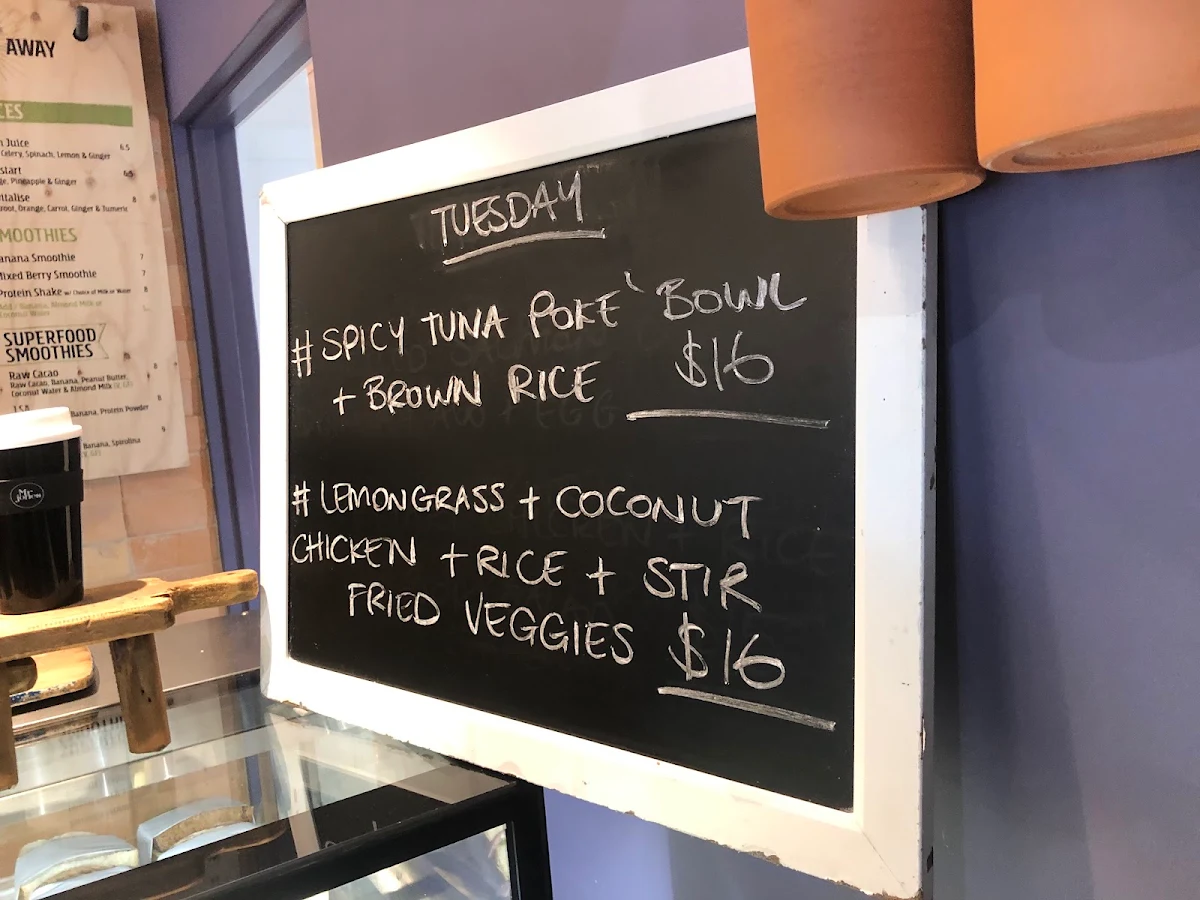 AWAY
6.5
Celery, Spinach, Lemon & Ginger
6.5
Pineapple & Ginger
8
Orange, Carrot, Ginger & Tumeric
Smoothie 7
Berry Smoothie 7
Protein Shake w/ Choice of Milk or Water 8
Banana, Almond Milk or
Coconut Water
SUPERFOOD
SMOOTHIES
Raw Cacao 8
Raw Cacao, Banana, Peanut Butter,
Coconut Water & Almond Milk
Banana, Protein Powder 8
Banana, Spirulina 9
TUESDAY
# SPICY TUNA POKE` BOWL
+ BROWN RICE $16
# LEMONGRASS + COCONUT
CHICKEN + RICE + STIR
FRIED VEGGIES $16